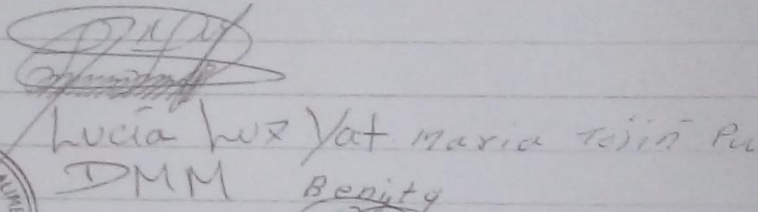 Lucía Luz Yat Maria Tojín Pu
DMM Benity